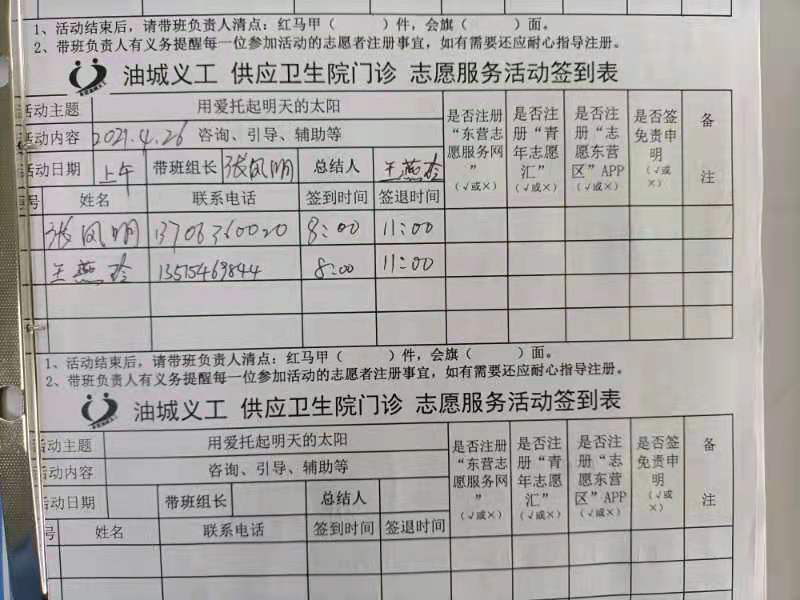 1、活动结束后，请带班负责人清点：红马甲（ ）件，会旗（ ）面。
2、带班负责人有义务提醒每一位参加活动的志愿者注册事宜，如有需要还应耐心指导注册。
油城义工 供应卫生院门诊 志愿服务活动签到表
活动主题 用爱托起明天的太阳 是否注册“东营志愿服务网”（√或×） 是否注册“青年志愿汇”（√或×） 是否注册“志愿东营区”APP（√或×） 是否签免责申明（√或×） 备注
活动内容 2021.4.26 咨询、引导、辅助等
活动日期 上午 带班组长 张凤明 总结人 王燕玲
号 姓名 联系电话 签到时间 签退时间
张凤明 13706360020 8:00 11:00
王燕玲 13515469844 8:00 11:00
1、活动结束后，请带班负责人清点：红马甲（ ）件，会旗（ ）面。
2、带班负责人有义务提醒每一位参加活动的志愿者注册事宜，如有需要还应耐心指导注册。
油城义工 供应卫生院门诊 志愿服务活动签到表
活动主题 用爱托起明天的太阳 是否注册“东营志愿服务网”（√或×） 是否注册“青年志愿汇”（√或×） 是否注册“志愿东营区”APP（√或×） 是否签免责申明（√或×） 备注
活动内容 咨询、引导、辅助等
活动日期 带班组长 总结人
号 姓名 联系电话 签到时间 签退时间